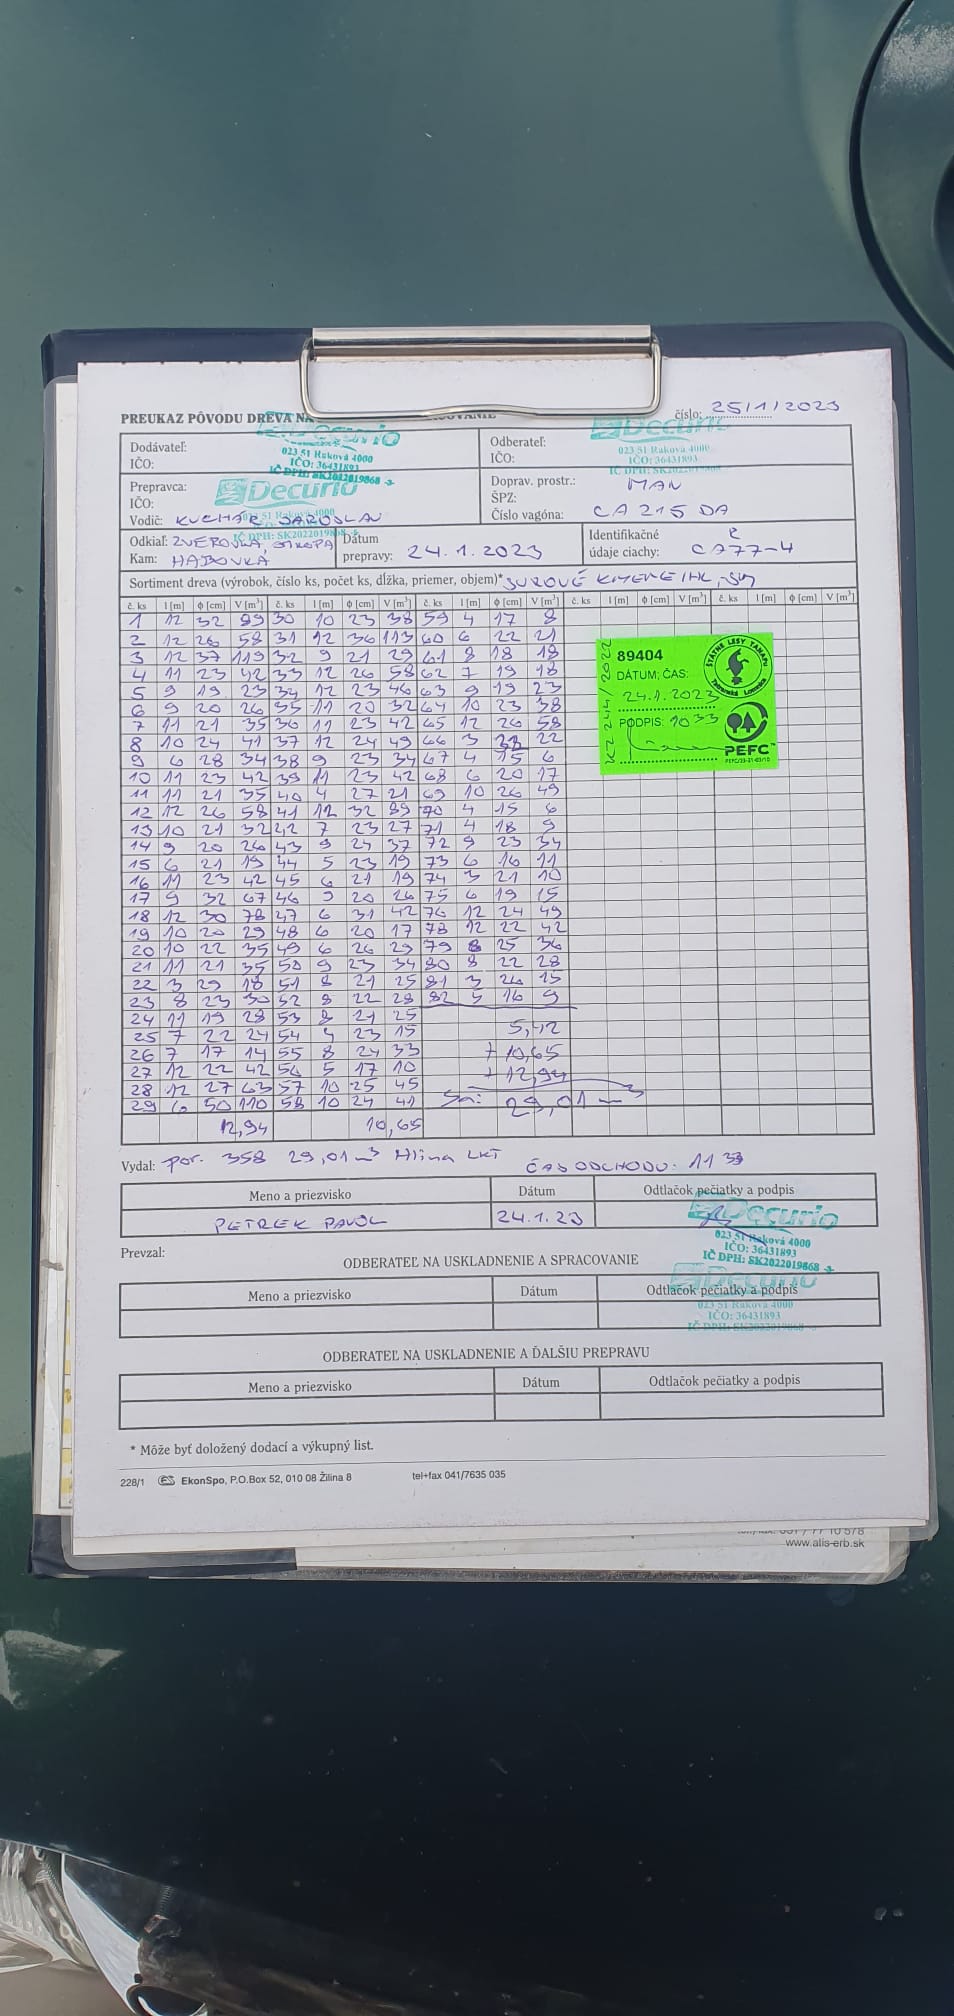 PREUKAZ PÔVODU DREVA NA
číslo: 25/1/2023
Dodávateľ:
IČO:
023 51 Raková 4000
IČO: 36431893
IČ DPH: SK2022019868 -3-
Odberateľ:
IČO:
Decurio
023 51 Raková 4000
IČO: 36431893
IČ DPH: SK2022019868
Prepravca:
IČO:
Decurio
Vodič: KUCHÁR JAROSLAV
Doprav. prostr.: MAN
ŠPZ:
Číslo vagóna: CA 215 DA
Odkiaľ: ZVEROVKA,
Kam: HABOVKA
Dátum
prepravy: 24.1.2023
Identifikačné
údaje ciachy: CA77-4
Sortiment dreva (výrobok, číslo ks, počet ks, dĺžka, priemer, objem)* SUROVÉ KMENE IHL,
č. ks l [m] ϕ [cm] V [m³] č. ks l [m] ϕ [cm] V [m³] č. ks l [m] ϕ [cm] V [m³] č. ks l [m] ϕ [cm] V [m³] č. ks l [m] ϕ [cm] V [m³]
1 12 32 89 30 10 23 38 59 4 17 8
2 12 26 58 31 12 36 113 60 6 22 21
3 12 37 119 32 9 21 29 61 8 18 18
4 11 23 42 33 12 26 58 62 7 19 18
5 9 19 23 34 12 23 46 63 9 19 23
6 9 20 26 35 11 20 32 64 10 23 38
7 11 21 35 36 11 23 42 65 12 26 58
8 10 24 41 37 12 24 49 66 3 22
9 6 28 34 38 9 23 34 67 4 15 6
10 11 23 42 39 11 23 42 68 6 20 17
11 11 21 35 40 4 27 21 69 10 26 49
12 12 26 58 41 12 32 89 70 4 15 6
13 10 21 32 42 7 23 27 71 4 18 9
14 9 20 26 43 9 24 37 72 9 23 34
15 6 21 19 44 5 23 19 73 6 16 11
16 11 23 42 45 6 21 19 74 3 21 10
17 9 32 67 46 9 20 26 75 6 19 15
18 12 30 78 47 6 31 42 76 12 24 49
19 10 20 29 48 6 20 17 78 12 22 42
20 10 22 35 49 6 26 29 79 8 25 36
21 11 21 35 50 9 23 34 80 8 22 28
22 3 29 18 51 8 21 25 81 3 26 15
23 8 23 30 52 8 22 28 82 5 16 9
24 11 19 28 53 8 21 25
25 7 22 24 54 4 23 15 5,42
26 7 17 14 55 8 24 33 + 10,65
27 12 22 42 56 5 17 10 + 12,94
28 12 27 63 57 10 25 45
29 6 50 110 58 10 24 41 Sa: 29,01 m³
12,94 10,65
KZ 244/2022
89404
DÁTUM, ČAS:
24.1.2023
PODPIS: 10 33
ŠTÁTNE LESY TANAPU
Tatranská Lomnica
PEFC™
Vydal: por. 358 29,01 m³ Hlina LKT ČAS ODCHODU: 11 33
Meno a priezvisko Dátum Odtlačok pečiatky a podpis
PETREK PAVOL 24.1.23
Decurio
023 51 Raková 4000
IČO: 36431893
IČ DPH: SK2022019868 -3-
Prevzal:
ODBERATEĽ NA USKLADNENIE A SPRACOVANIE
Meno a priezvisko Dátum Odtlačok pečiatky a podpis
Decurio
023 51 Raková 4000
IČO: 36431893
ODBERATEĽ NA USKLADNENIE A ĎALŠIU PREPRAVU
Meno a priezvisko Dátum Odtlačok pečiatky a podpis
* Môže byť doložený dodací a výkupný list.
228/1 EkonSpo, P.O.Box 52, 010 08 Žilina 8 tel+fax 041/7635 035
www.alis-erb.sk